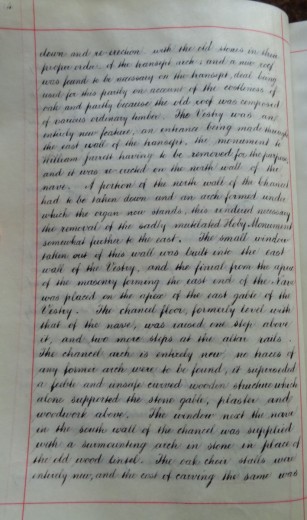 down and re-erection with the old stones in their
proper order of the transept arch; and a new roof
was found to be necessary on the transept, deal being
used for this partly on account of the costliness of
oak and partly because the old roof was composed
of various ordinary timber. The Vestry was an
entirely new feature, an entrance being made through
the east wall of the transept, the monument to
William Jarrett having to be removed for the purpose,
and it was re-erected on the north wall of the
nave. A portion of the north wall of the Chancel
had to be taken down and an arch formed under
which the organ now stands, this rendered necessary
the removal of the sadly mutilated Hoby Monument
somewhat further to the east. The small window
taken out of this wall was built into the east
wall of the Vestry, and the finial from the apex
of the masonry forming the east end of the Nave
was placed on the apex of the east gable of the
Vestry. The chancel floor, formerly level with
that of the nave, was raised one step above
it, and two more steps at the altar rails.
The chancel arch is entirely new; no traces of
any former arch were to be found, it superseded
a feeble and unsafe curved wooden structure which
alone supported the stone gable, plaster and
woodwork above. The window next the nave
in the south wall of the chancel was supplied
with a surmounting arch in stone in place of
the old wood lintel. The oak choir stalls were
entirely new, and the cost of carving the same was